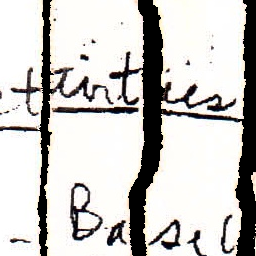 tivities
- Basel